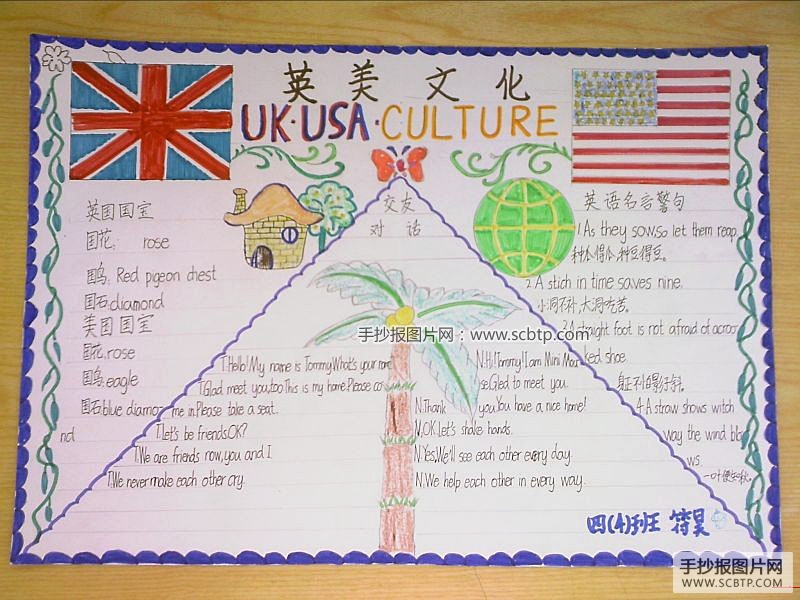 英美文化
UK·USA·CULTURE
英国国宝
国花: rose
国鸟: Red pigeon chest
国石: diamond
美国国宝
国花: rose
国鸟: eagle
国石 blue diamo
nd
交友
对话
T.Hello! My name is Tommy What's your name
T.Glad meet you,too This is my home.Please co
me in.Please take a seat.
T.Let's be friends OK?
T.We are friends now, you and I
T.We never make each other cry.
N.Hi!Tommy!I am Mini Mou
se.Gled to meet you.
N.Thank you.You have a nice home!
N.OK.Let's shake hands.
N.Yes.We'll see each other every day.
N.We help each other in every way.
英语名言警句
1As they sow,so let them reap.
种瓜得瓜,种豆得豆。
2.A stich in time saves nine.
小洞不补,大洞吃苦。
3.A straight foot is not afraid of acroo
ked shoe.
身正不怕影子斜。
4.A straw shows witch
way the wind blo
ws.
一叶便知秋。
四(4)班 符昊
手抄报图片网:www.scbtp.com
手抄报图片网
WWW.SCBTP.COM